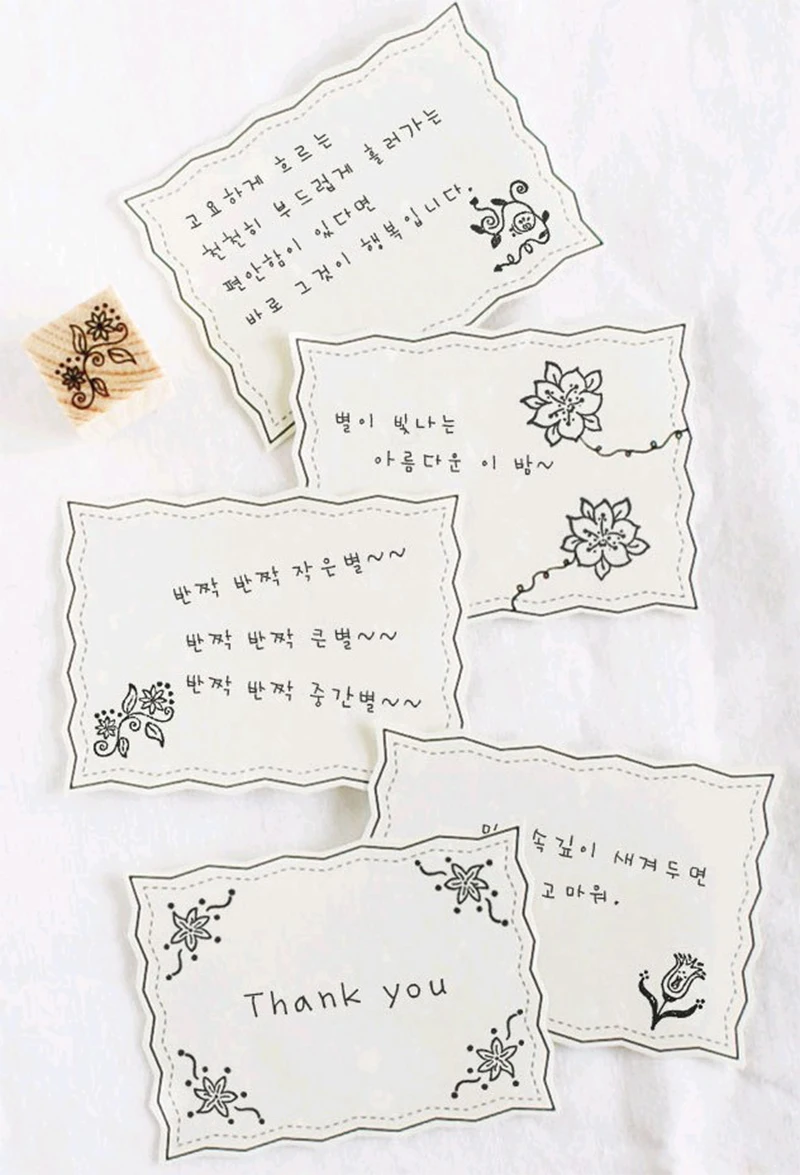 고요하게 흐르는
천천히 부드럽게 흘러가는
편안함이 있다면
바로 그것이 행복입니다.
별이 빛나는
아름다운 이 밤~
반짝 반짝 작은별~~
반짝 반짝 큰별~~
반짝 반짝 중간별~~
속깊이 새겨두면
고마워.
Thank you